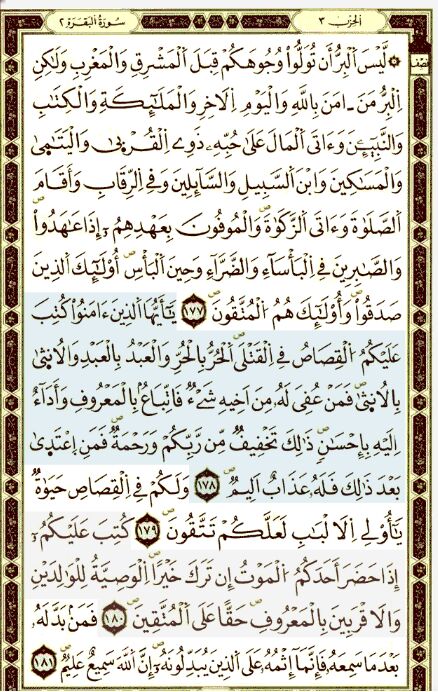 الحزب ٣
سُورَةُ البَقَرَة ٢
نصف
۞ لَّيْسَ اَلْبِرُّ أَن تُوَلُّواْ وُجُوهَكُمْ قِبَلَ اَلْمَشْرِقِ وَالْمَغْرِبِ وَلَٰكِنِ
اِلْبِرُّ مَنَ ـامَنَ بِاللَّهِ وَالْيَوْمِ اِلَاخِرِ وَالْمَلَٰٓئِكَةِ وَالْكِتَٰبِ
وَالنَّبِيٓـِٕنَ وَءَاتَى اَلْمَالَ عَلَىٰ حُبِّهِۦ ذَوِے اِلْقُرْبَىٰ وَالْيَتَٰمَىٰ
وَالْمَسَٰكِينَ وَابْنَ اَلسَّبِيلِ وَالسَّآئِلِينَ وَفِي اِلرِّقَابِ وَأَقَامَ
اَلصَّلَوٰةَ وَءَاتَى اَلزَّكَوٰةَ وَالْمُوفُونَ بِعَهْدِهِمُۥٓ إِذَا عَٰهَدُواْ
وَالصَّٰبِرِينَ فِي اِلْبَأْسَآءِ وَالضَّرَّآءِ وَحِينَ اَلْبَأْسِ أُوْلَٰٓئِكَ اَلذِينَ
صَدَقُواْ وَأُوْلَٰٓئِكَ هُمُ اُلْمُتَّقُونَ ١٧٧ يَٰٓأَيُّهَا اَلذِينَ ءَامَنُواْ كُتِبَ
عَلَيْكُمُ اُلْقِصَاصُ فِي اِلْقَتْلَى اَلْحُرُّ بِالْحُرِّ وَالْعَبْدُ بِالْعَبْدِ وَالُانثَىٰ
بِالُانثَىٰ فَمَنْ عُفِيَ لَهُۥ مِنَ اَخِيهِ شَےْءٌ فَاتِّبَاعٌۢ بِالْمَعْرُوفِ وَأَدَآءٌ
اِلَيْهِ بِإِحْسَٰنٍ ذَٰلِكَ تَخْفِيفٌ مِّن رَّبِّكُمْ وَرَحْمَةٌ فَمَنِ اِعْتَدَىٰ
بَعْدَ ذَٰلِكَ فَلَهُۥ عَذَابٌ اَلِيمٌ ١٧٨ وَلَكُمْ فِي اِلْقِصَاصِ حَيَوٰةٌ
يَٰٓأُوْلِي اِلَالْبَٰبِ لَعَلَّكُمْ تَتَّقُونَ ١٧٩ كُتِبَ عَلَيْكُمُۥٓ
إِذَا حَضَرَ أَحَدَكُمُ اُلْمَوْتُ إِن تَرَكَ خَيْراً اِلْوَصِيَّةُ لِلْوَٰلِدَيْنِ
وَالَاقْرَبِينَ بِالْمَعْرُوفِ حَقّاً عَلَى اَلْمُتَّقِينَ ١٨٠ فَمَنۢ بَدَّلَهُۥ
بَعْدَ مَا سَمِعَهُۥ فَإِنَّمَآ إِثْمُهُۥ عَلَى اَلذِينَ يُبَدِّلُونَهُۥٓ إِنَّ اَللَّهَ سَمِيعٌ عَلِيمٌ ١٨١